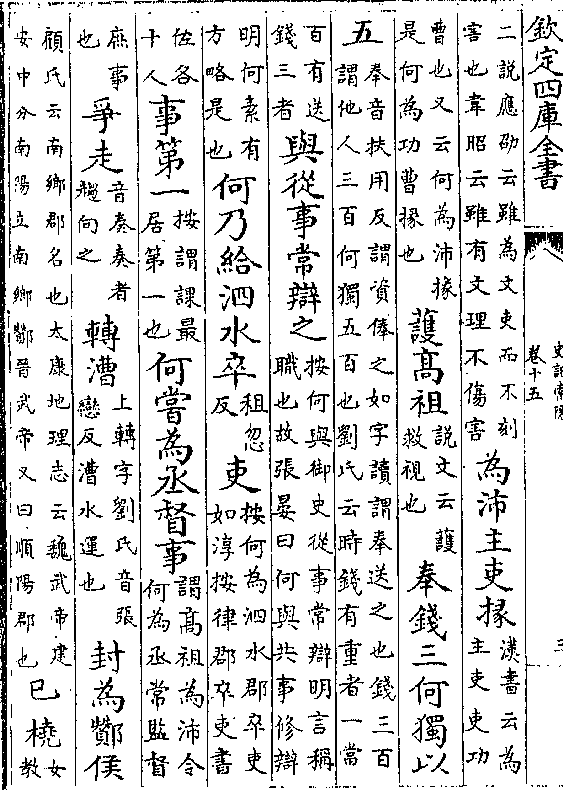 欽定四庫全書
史記索隱
卷十五
三
二說應劭云雖為文吏而不刻
害也韋昭云雖有文理不傷害
為沛主吏掾
漢書云為
主吏吏功
曹也又云何為沛掾
是何為功曹掾也
護高祖
說文云護
救視也
奉錢三何獨以
五
奉音扶用反謂資俸之如字讀謂奉送之也錢三百
謂他人三百何獨五百也劉氏云時錢有重者一當
百有送
錢三者
與從事常辯之
按何與御史從事常辯明言稱
職也故張晏曰何與共事修辯
明何素有
方略是也
何乃給泗水卒
祖忽
反
吏
按何為泗水郡卒吏
如淳按律郡卒吏書
佐各
十人
事第一
按謂課最
居第一也
何嘗為丞督事
謂高祖為沛令
何為丞常監督
庶事
也
爭走
音奏奏者
趨向之
轉漕
上轉字劉氏音張
戀反漕水運也
封為酇侯
顧氏云南鄉郡名也太康地理志云魏武帝建
安中分南陽立南鄉酇晉武帝又曰順陽郡也
已橈
女
教